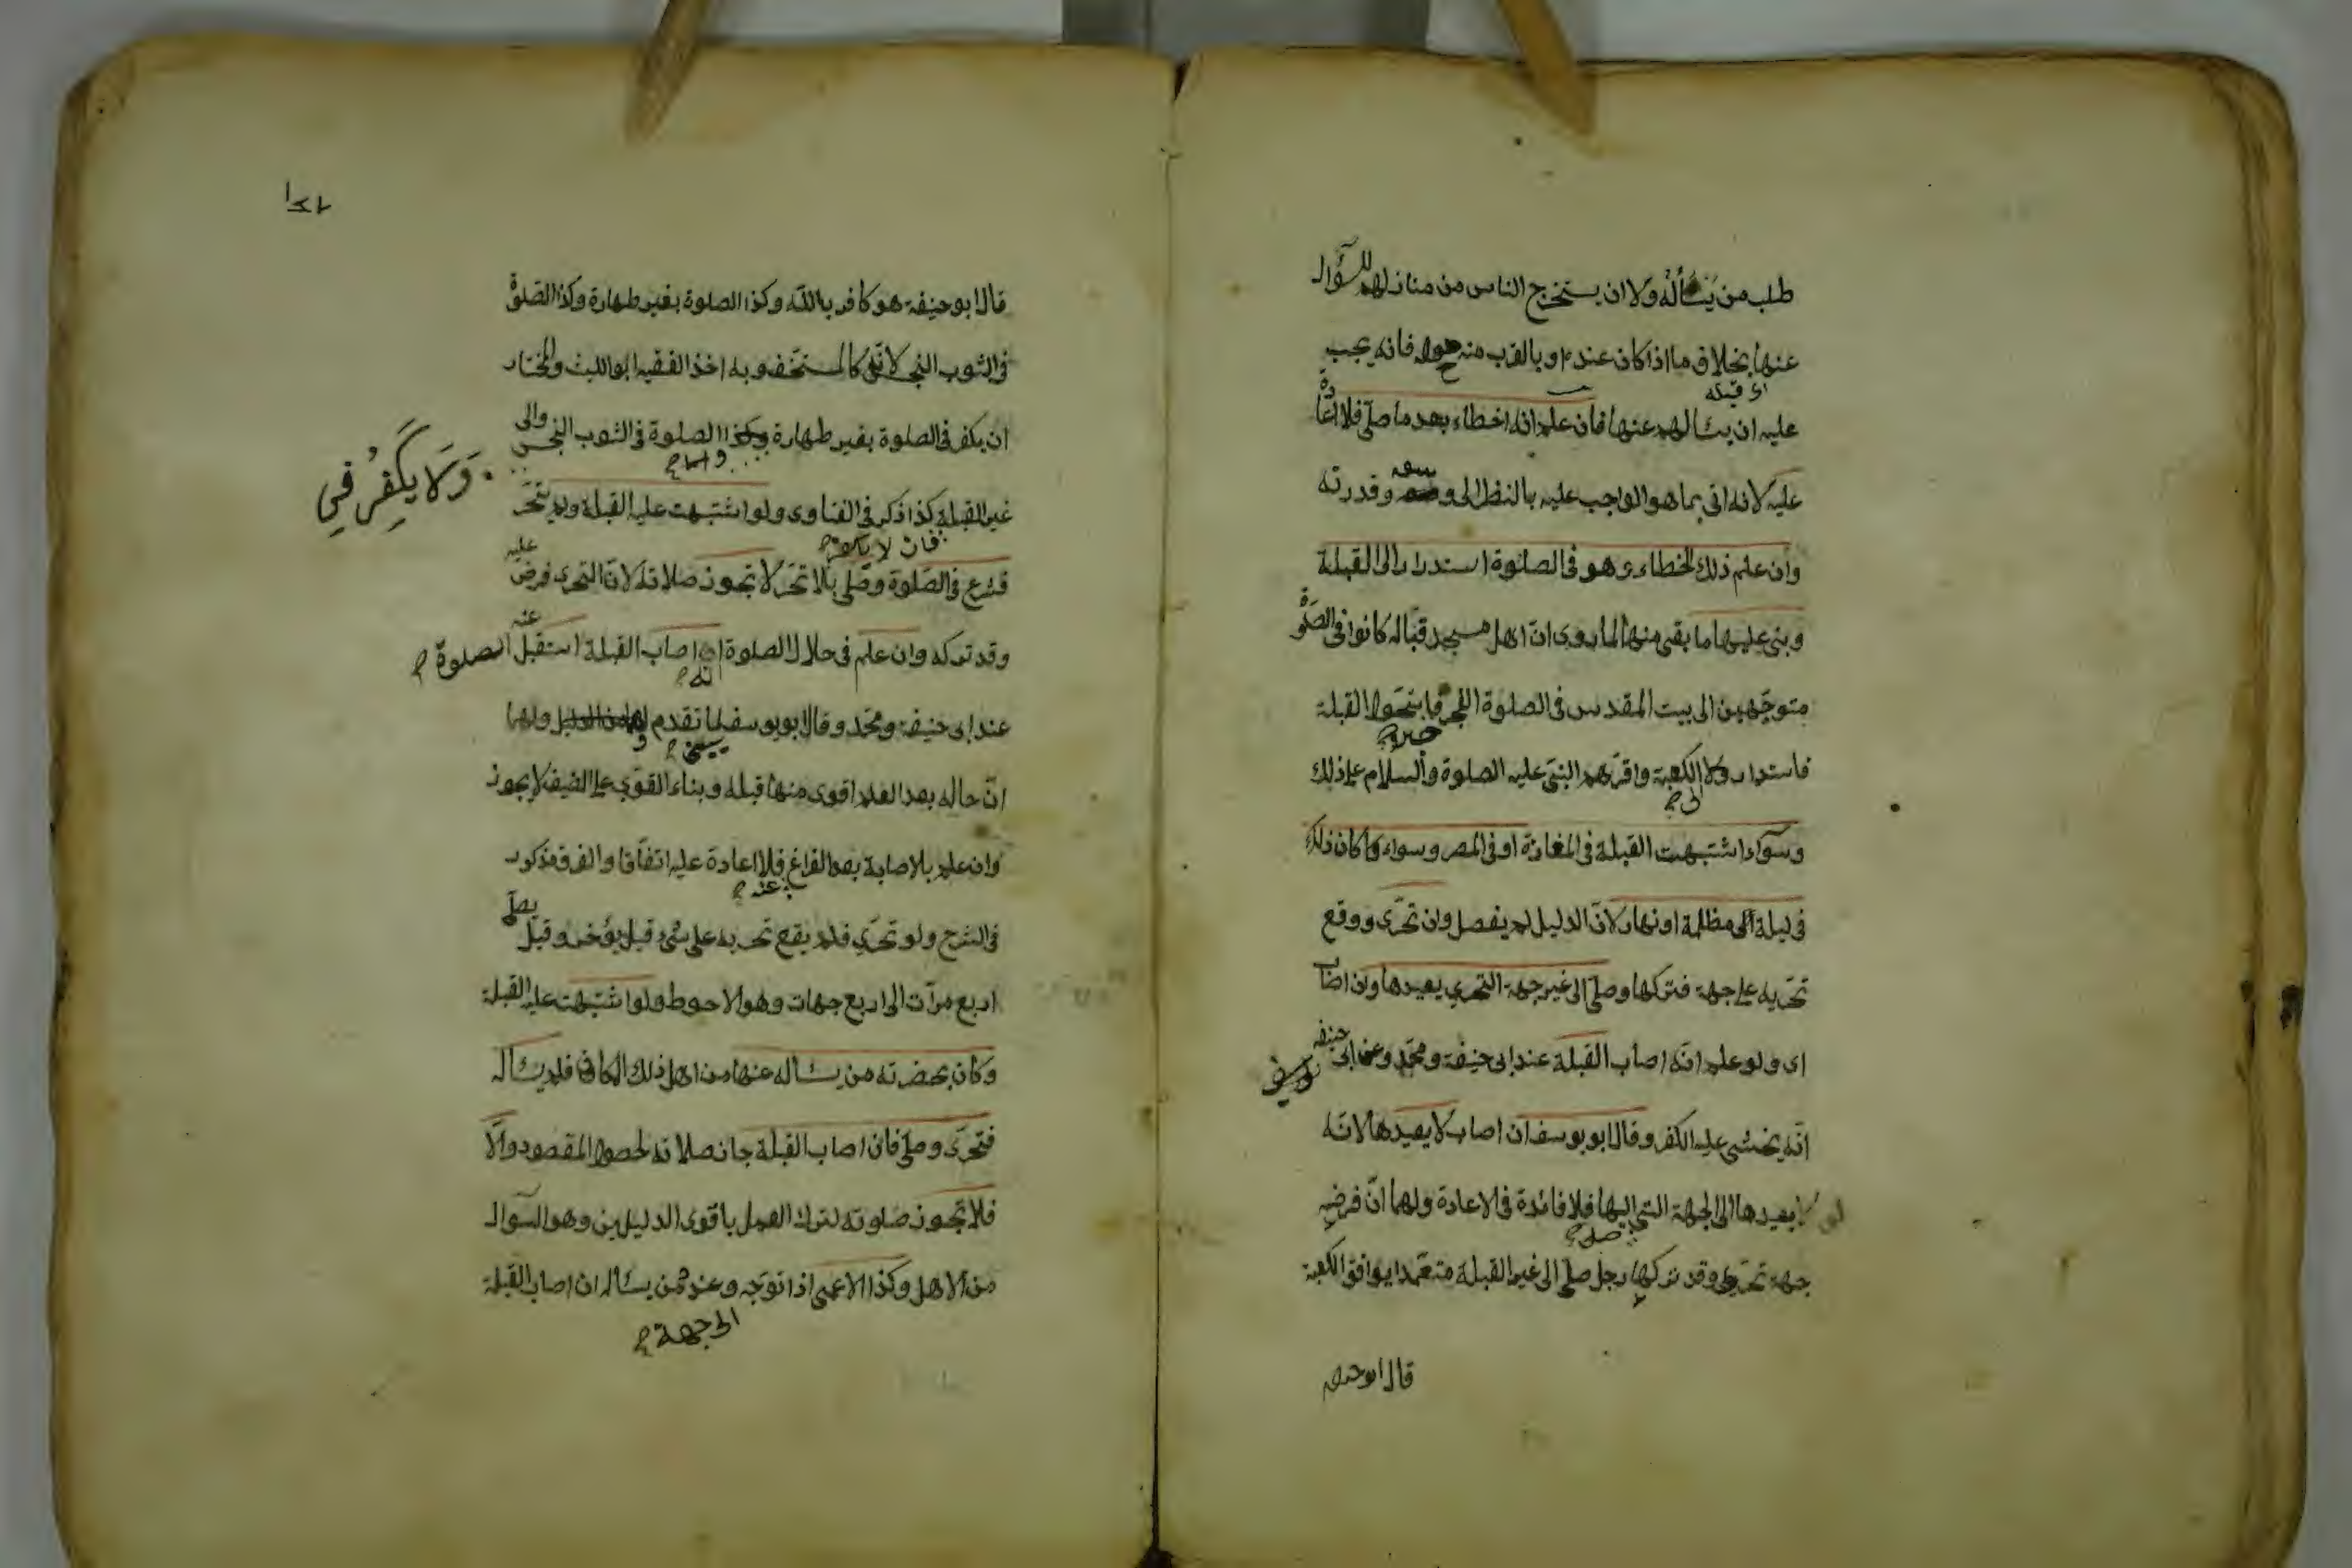 طلب من يسأله ولا ان يستخرج الناس من منازلهم للسؤال
عنها بخلاف ما اذا كان عنده او بالقرب منه فانه يجب
اى قبله
عليه ان يسالهم عنها فان علم انه اخطاء بعد ما صلى فلا اعادة
عليه لانه اتى بما هو الواجب عليه بالنظر الى وسعه وقدرته
وان علم ذلك الخطاء وهو فى الصلوة استدار الى القبلة
وبنى عليها ما بقى منها لما روى ان اهل مسجد قبا كانوا فى الصلوة
متوجهين الى بيت المقدس فى الصلوة الفجر القبلة
فاستداروا الى الكعبة واقرهم النبى عليه الصلوة والسلام على ذلك
وسواء اشتبهت القبلة فى المغازة او فى المصر وسواء كان ذلك
فى ليلة مظلمة او نهار لان الدليل لم يفصل وان تحرى ووقع
تحريه على جهة فتركها وصلى الى غير جهة التحرى يعيدها وان اصاب
اى ولو علم انه اصاب القبلة عند ابى حنيفة ومحمد وعن ابى حنيفه
انه يخشى عليه الكفر وقال ابو يوسف ان اصاب لا يعيدها لانه
يعيدها الى الجهة التى اليها فلا فائدة فى الاعادة ولهما ان فرضه
صلى
جهة تحريه وقد تركها رجل صلى الى غير القبلة متعمدا يوافق الكعبة
قال ابو حنيفه
١٨٢
قال ابو حنيفة هو كافر بالله وكذا الصلوة بغير طهارة وكذا الصلوة
فى الثوب النجس لانه كالمستخف وبه اخذ الفقيه ابو الليث والمختار
ان يكفر فى الصلوة بغير طهارة الصلوة فى الثوب النجس والى
ولا يكفر فى
غير القبلة كذا ذكر فى الفتاوى ولو اشتبهت عليه القبلة ولم يتحر
فشرع فى الصلوة وصلى بلا تحر لا تجوز صلاته لان التحرى فرض عليه
وقد تركه وان علم فى خلال الصلوة انه اصاب القبلة استقبل الصلوة
عند ابى حنيفة ومحمد وقال ابو يوسف يبنى لما تقدم ولهما
ان حاله بعد العلم اقوى منها قبله وبناء القوى على الضعيف لا يجوز
وان علم بالاصابة بعد الفراغ فلا اعادة عليه اتفاقا والفرق مذكور
عنه
فى الشرح ولو تحرى فلم يقع تحريه على شىء قيل يؤخر وقيل يصلى
اربع مرآت الى اربع جهات وهو الاحوط ولو اشتبهت عليه القبلة
وكان بحضرته من يساله عنها من اهل ذلك المكان فلم يساله
فتحرى وصلى فان اصاب القبلة جاز صلاته لحصول المقصود والا
فلا تجوز صلوته لترك العمل باقوى الدليلين وهو السوال
من الاهل وكذا الاعمى اذا توجه وعنده من يساله ان اصاب القبلة
الى جهة